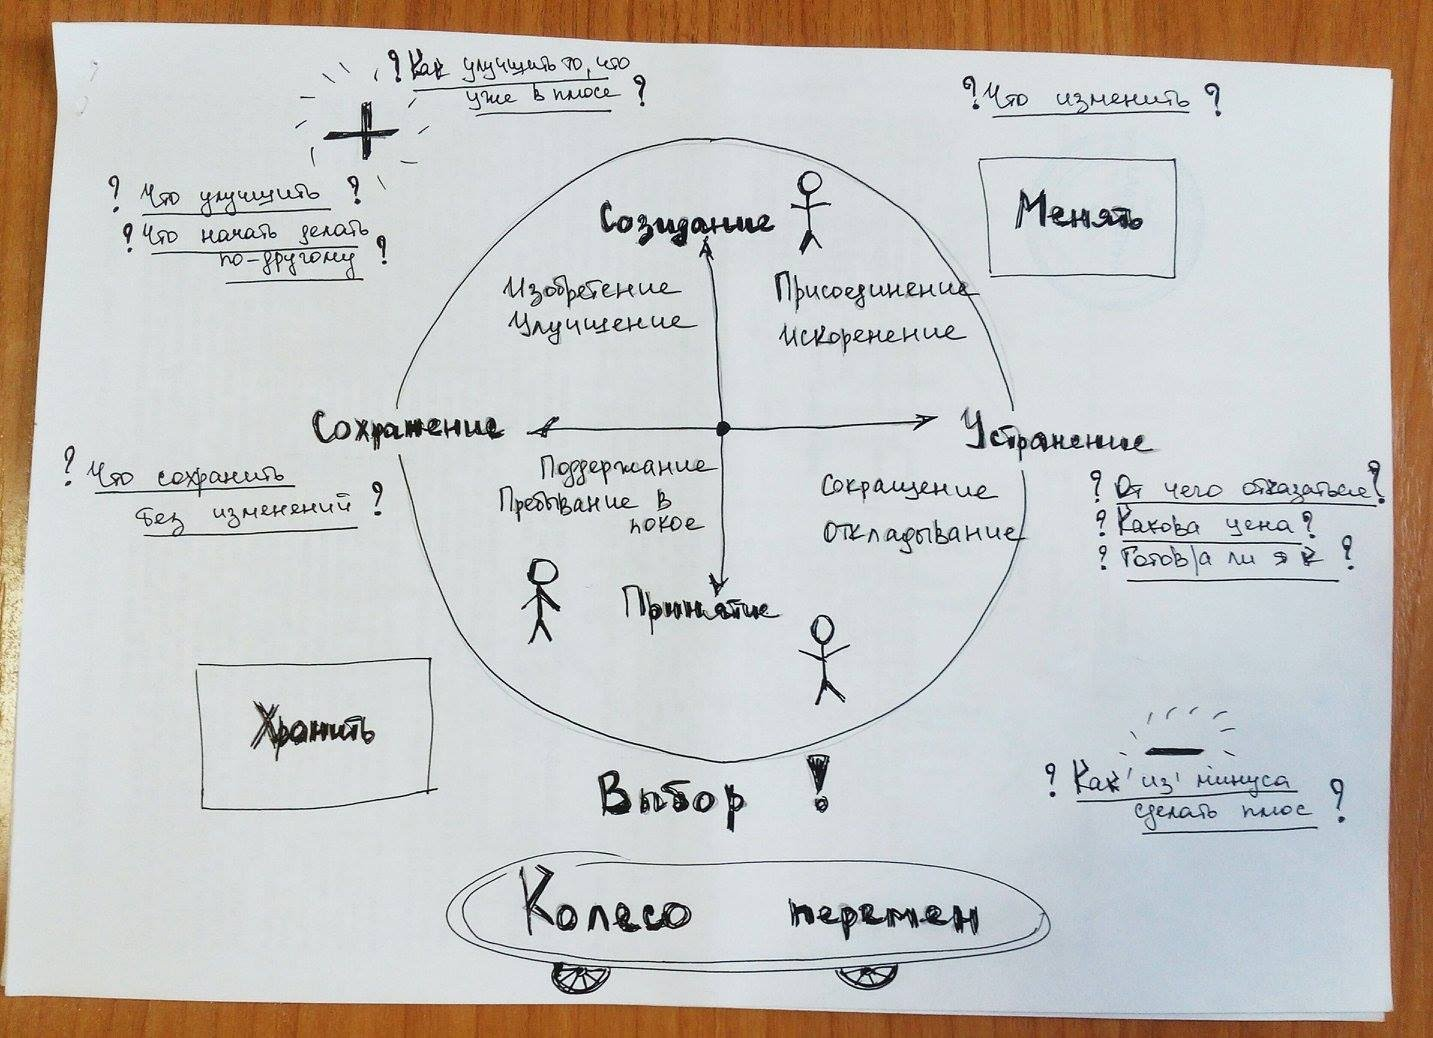 ? Как улучшить то, что
уже в плюсе ?
+
? Что улучшить ?
? Что начать делать
по-другому ?
? Что изменить ?
Менять
Созидание
Изобретение
Улучшение
Присоединение
Искоренение
Сохранение
Устранение
? Что сохранить
без изменений ?
Поддержание
Пребывание в
покое
Сокращение
Откладывание
? От чего отказаться?
? Какова цена?
? Готов/а ли я к ?
Принятие
Хранить
–
? Как 'из' минуса
сделать плюс ?
Выбор !
Колесо перемен